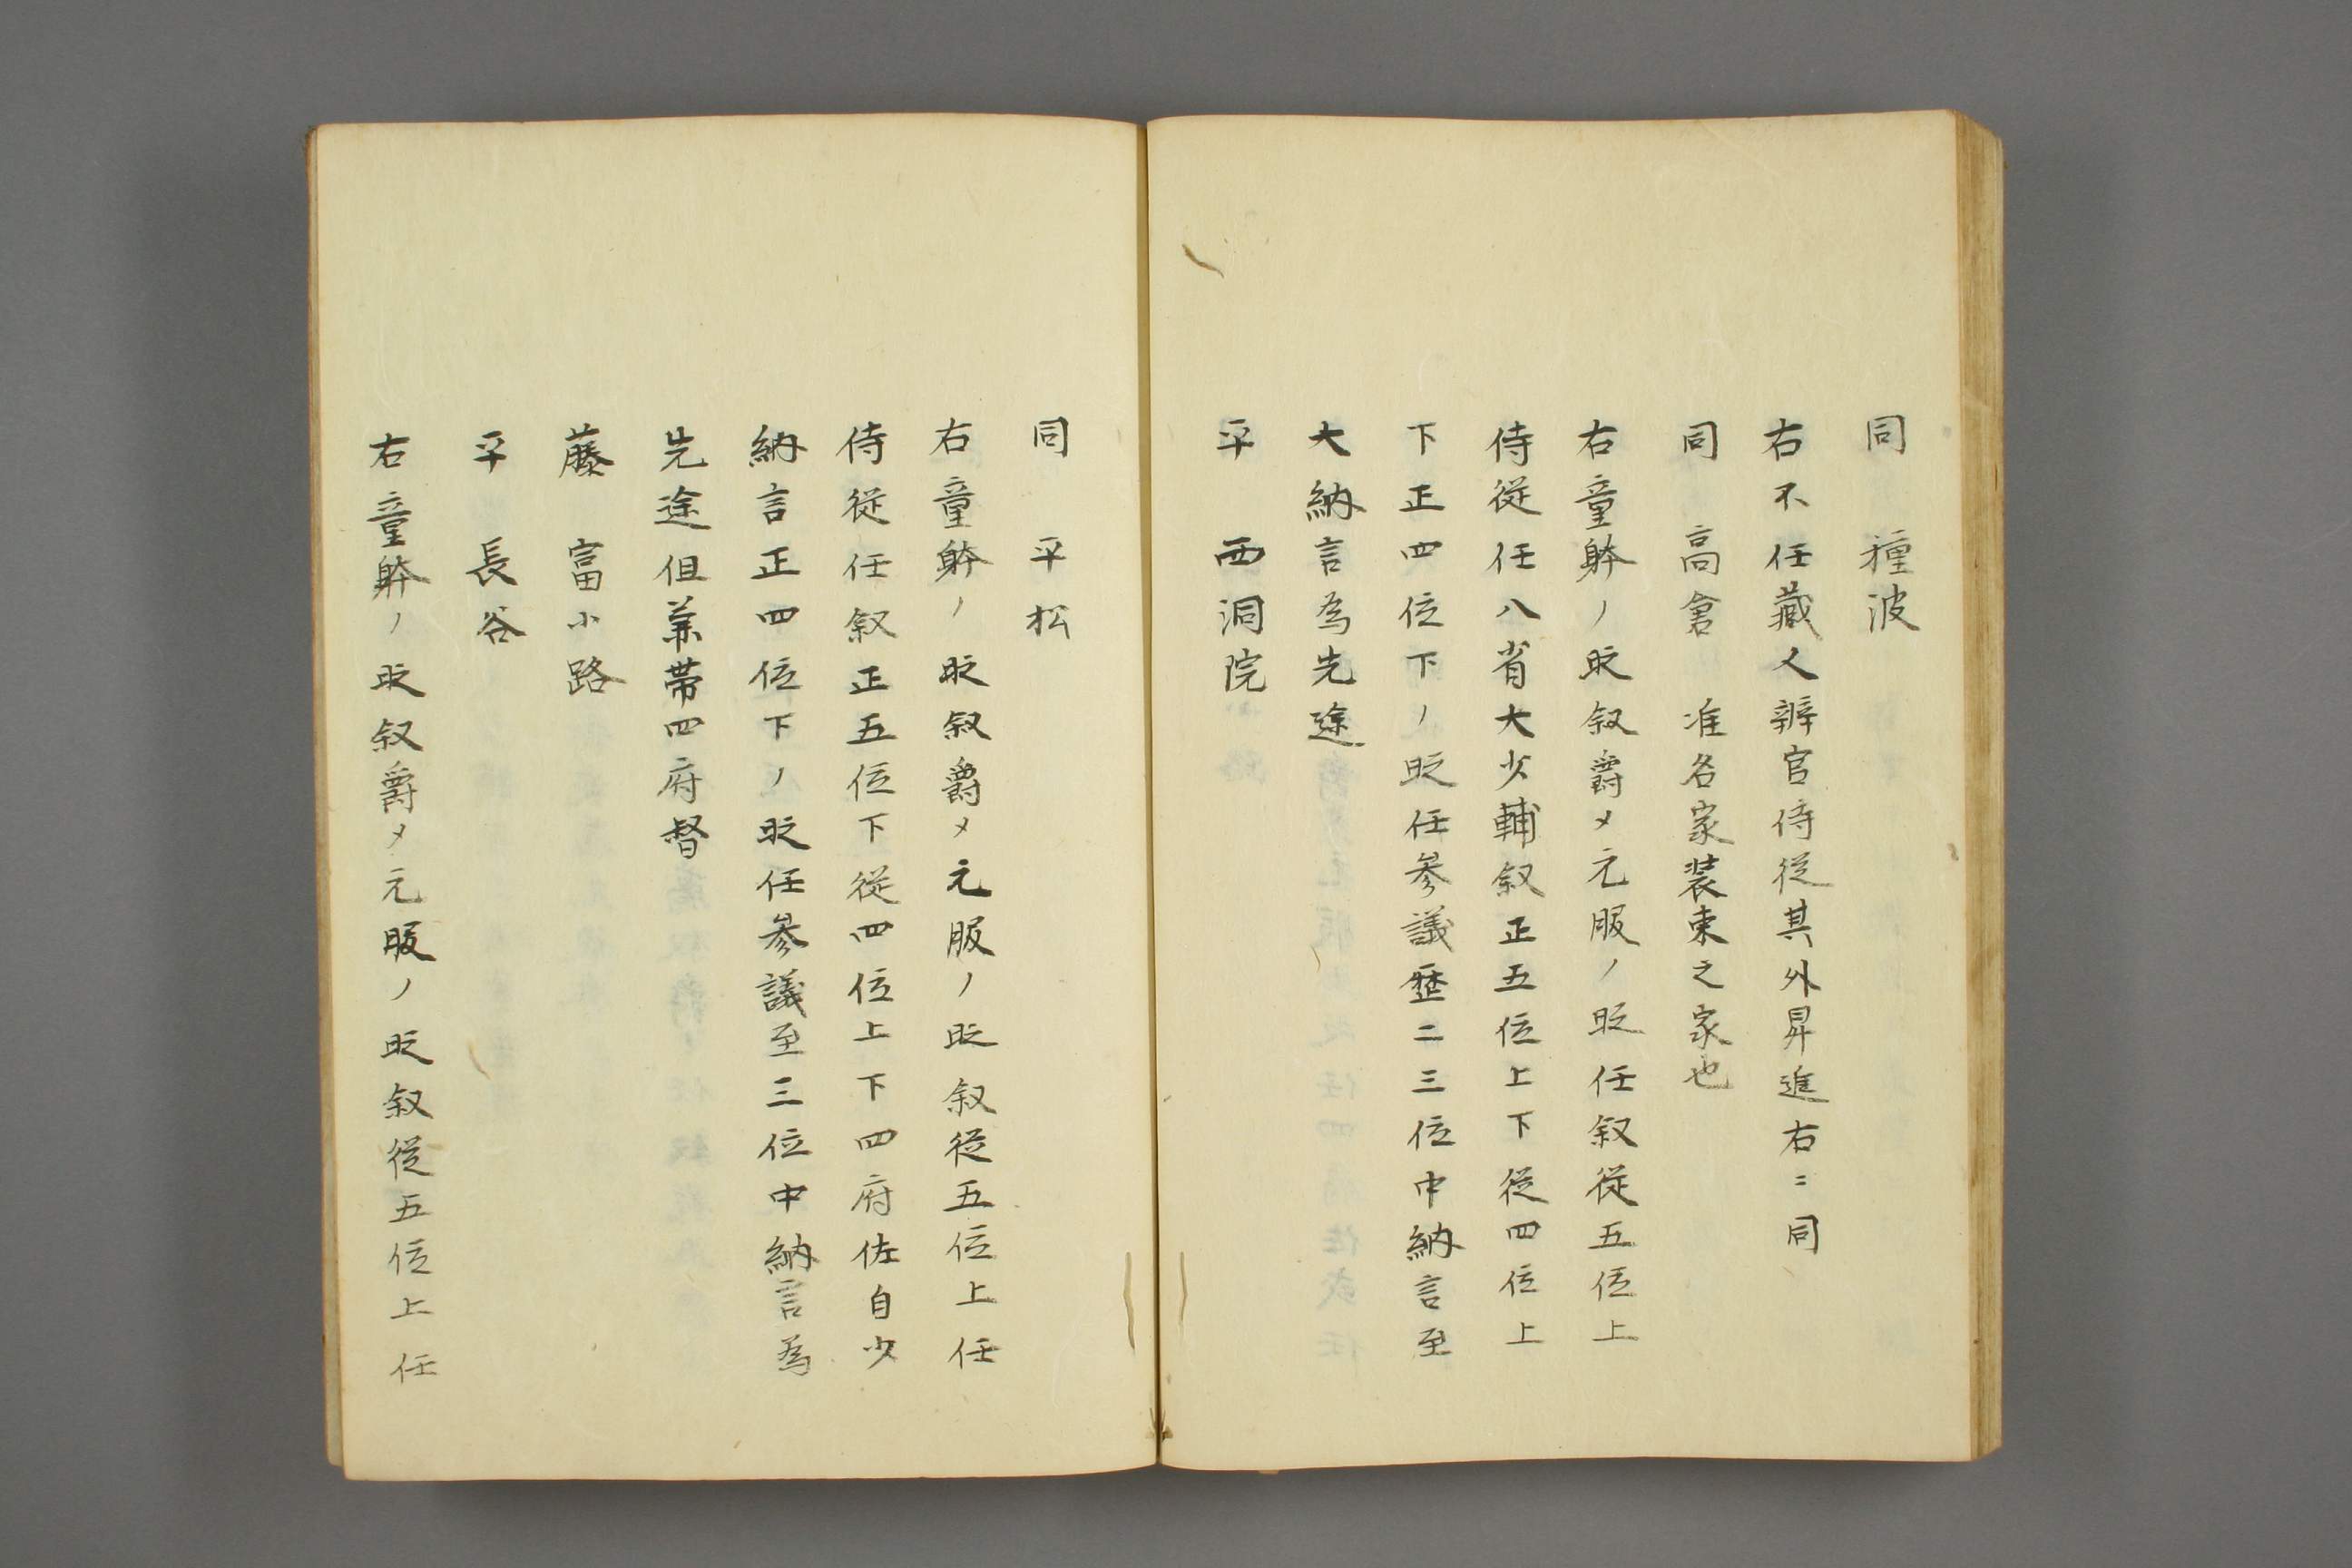 同　種波
右不任藏人辨官侍従其外昇進右ニ同
同　高倉　准名家装束之家也
右童躰ノ時叙爵〆元服ノ時任叙従五位上
侍従任八省大少輔叙正五位上下従四位上
下正四位下ノ時任参議歴二三位中納言至
大納言為先途
平　西洞院
同　平松
右童躰ノ時叙爵〆元服ノ時叙従五位上任
侍従任叙正五位下従四位上下四府佐自少
納言正四位下ノ時任参議至三位中納言為
先途但兼帯四府督
藤　富小路
平　長谷
右童躰ノ時叙爵〆元服ノ時叙従五位上任